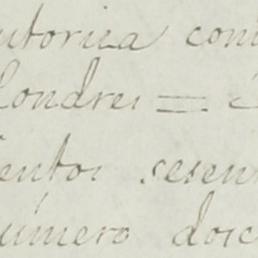 utoriza con
Londres =
entos sesen
número dosc